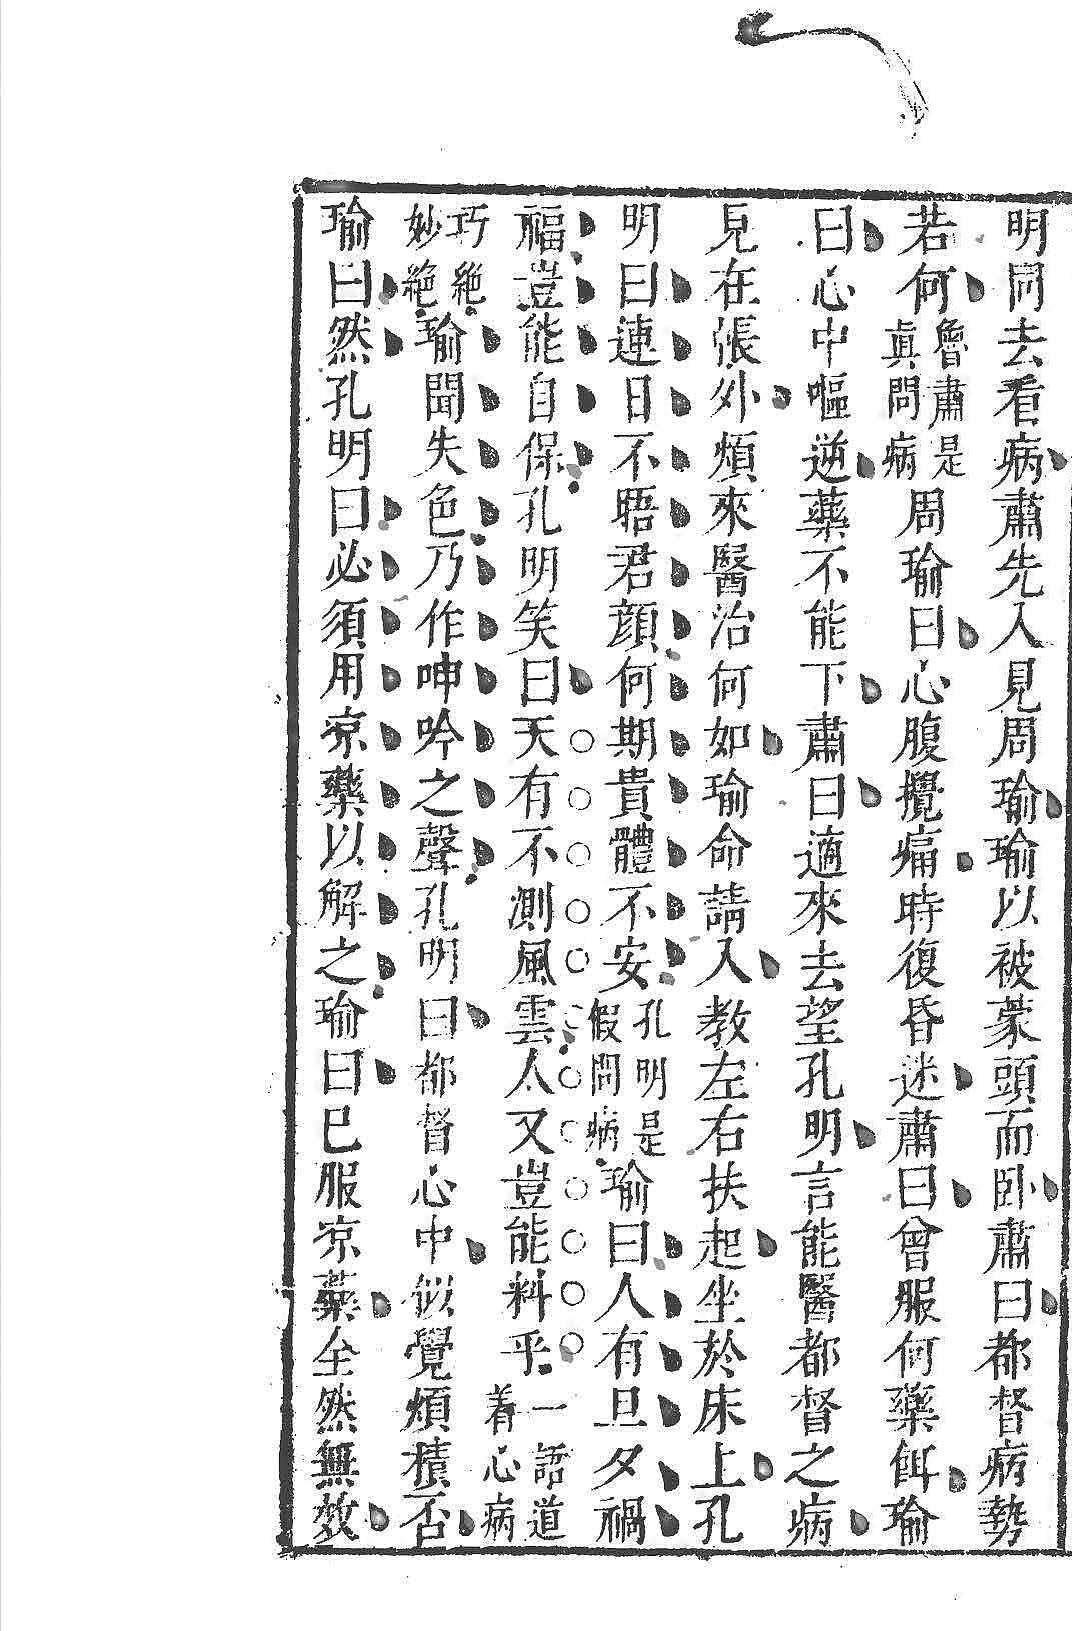 明同去看病肅先入見周瑜瑜以被蒙頭而卧肅曰都督病勢
若何魯肅是眞問病周瑜曰心腹攪痛時復昏迷肅曰曾服何藥餌瑜
曰心中嘔逆藥不能下肅曰適來去望孔明言能醫都督之病
見在張外煩來醫治何如瑜命請入教左右扶起坐於床上孔
明曰連日不晤君顔何期貴體不安孔明是假問病瑜曰人有旦夕禍
福豈能自保孔明笑曰天有不測風雲人又豈能料乎一語道着心病
巧絶妙絶瑜聞失色乃作呻吟之聲孔明曰都督心中似覺煩積否
瑜曰然孔明曰必須用凉藥以解之瑜曰巳服凉藥全然無效